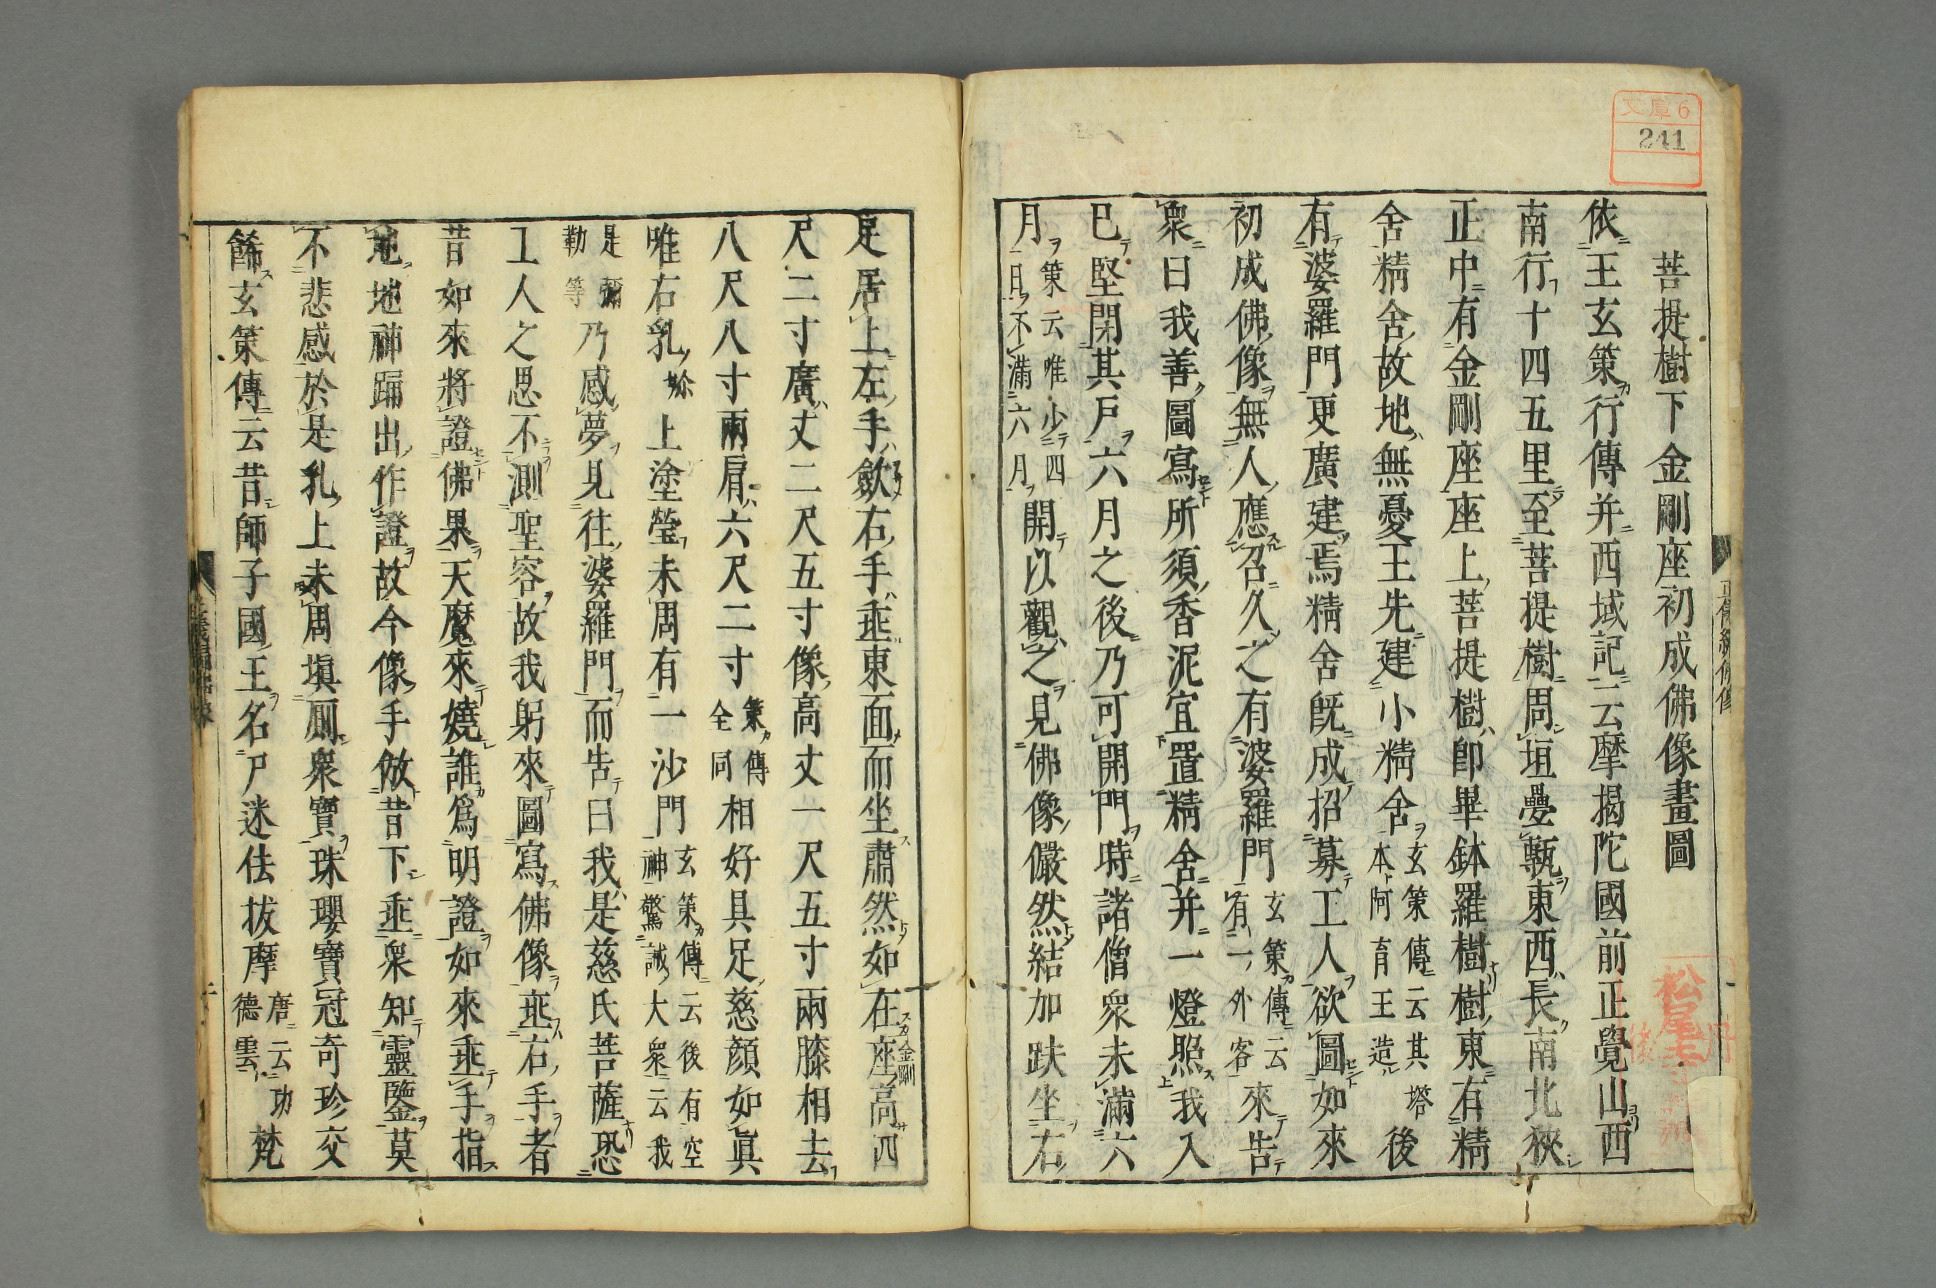 文庫6
241
菩提樹下金剛座初成佛像畫圖
依王玄策行傳并西域記云摩揭陀國前正覺山西
南行十四五里至菩提樹周垣壘甎東西長南北狹
正中有金剛座座上菩提樹即畢鉢羅樹樹東有精
舍精舍故地無憂王先建小精舍玄策傳云其塔本阿育王造後
有婆羅門更廣建焉精舍既成招募工人欲圖如來
初成佛像無人應召久之有婆羅門玄策傳云有一外客來告
衆曰我善圖寫所須香泥宜置精舍并一燈照我入
已堅閉其戸六月之後乃可開門時諸僧衆未滿六
月策云唯少四日不滿六月開以觀之見佛像儼然結加趺坐右
足居上左手歛右手垂東面而坐肅然如在座金剛高四
尺二寸廣丈二尺五寸像高丈一尺五寸兩膝相去
八尺八寸兩肩六尺二寸策傳全同相好具足慈顔如眞
唯右乳上塗瑩未周有一沙門玄策傳云後有空神驚誡大衆云我
是彌勒等乃感夢見往婆羅門而告曰我是慈氏菩薩恐
工人之思不測聖容故我躬來圖寫佛像垂右手者
昔如來將證佛果天魔來嬈誰爲明證如來垂手指
地地神踊出作證故今像手倣昔下垂衆知靈鑒莫
不悲感於是乳上未周塡厠衆寶珠瓔寶冠奇珍交
餙玄策傳云昔師子國王名尸迷佉拔摩唐云功德雲梵